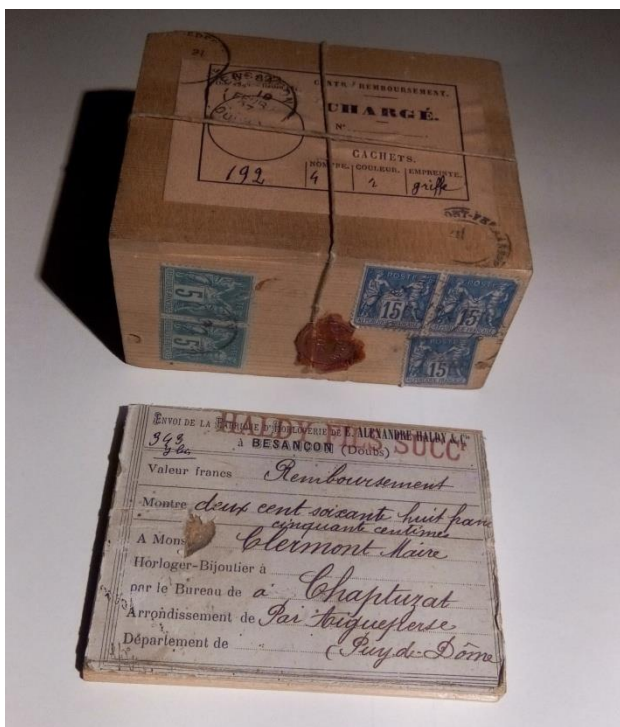 CONTRE REMBOURSEMENT.
CHARGÉ.
N°
CACHETS.
NOMBRE. COULEUR. EMPREINTE.
192 4 griffe
5
5
POSTES
15
15
15
ENVOI DE LA FABRIQUE D'HORLOGERIE DE E. ALEXANDRE HALDY & Cie
HALDY FILS SUCC
à BESANÇON (Doubs)
Valeur francs Remboursement
Montre deux cent soixante huit franc
cinquante centimes
A Mons Clermont Maire
Horloger-Bijoutier à
par le Bureau de à Chaptuzat
Arrondissement de Par Aigueperse
Département de (Puy-de-Dôme